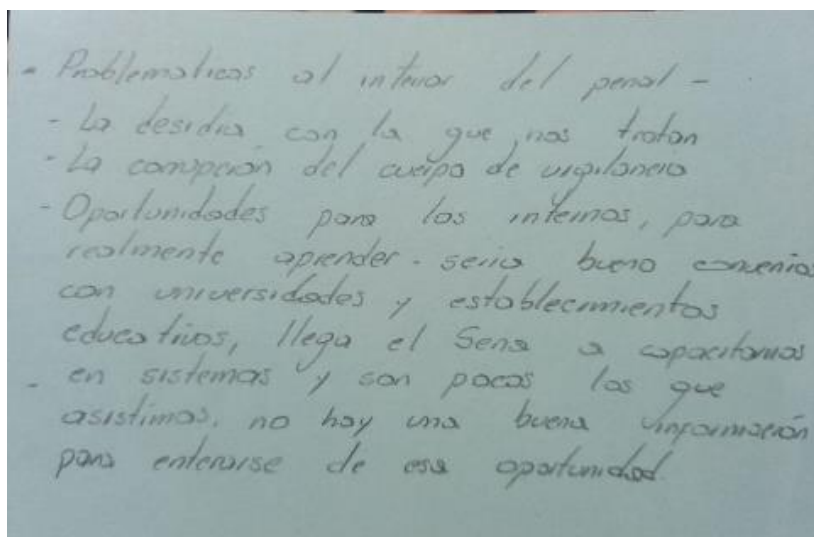 - Problematicas al interior del penal -
- La desidia con la que nos tratan
- La corrupción del cuerpo de vigilancia
- Oportunidades para los internos, para
realmente aprender - seria bueno convenios
con universidades y establecimientos
educativos, llega el Sena a capacitarnos
- en sistemas y son pocos los que
asistimos, no hay una buena información
para enterarse de esa oportunidad.